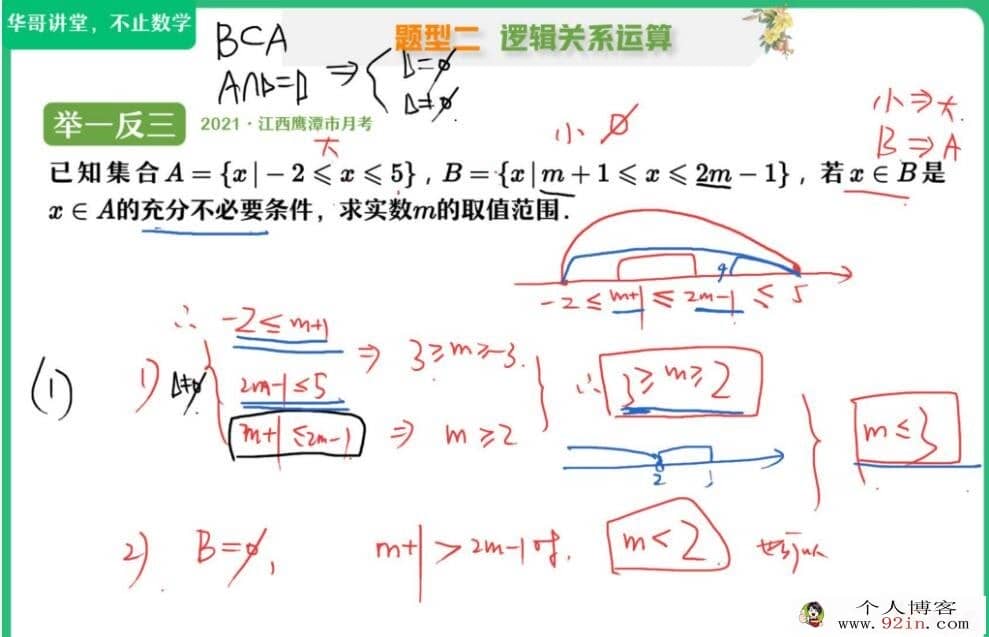 华哥讲堂，不止数学
题型二 逻辑关系运算
B⊂A
A∩B=B ⇒ { B=∅
B≠∅
举一反三 2021·江西鹰潭市月考
小 ∅
小⇒大
B⇒A
大
已知集合A={x|-2⩽x⩽5}，B={x|m+1⩽x⩽2m-1}，若x∈B是
x∈A的充分不必要条件，求实数m的取值范围．
-2≤m+1≤2m-1≤5
∴ -2≤m+1
(1) 1) B≠∅ { 2m-1≤5 ⇒ 3≥m≥-3
m+1≤2m-1 ⇒ m≥2
∴ 3≥m≥2
m≤3
2
2) B=∅, m+1>2m-1时, m<2
个人博客
www.92in.com